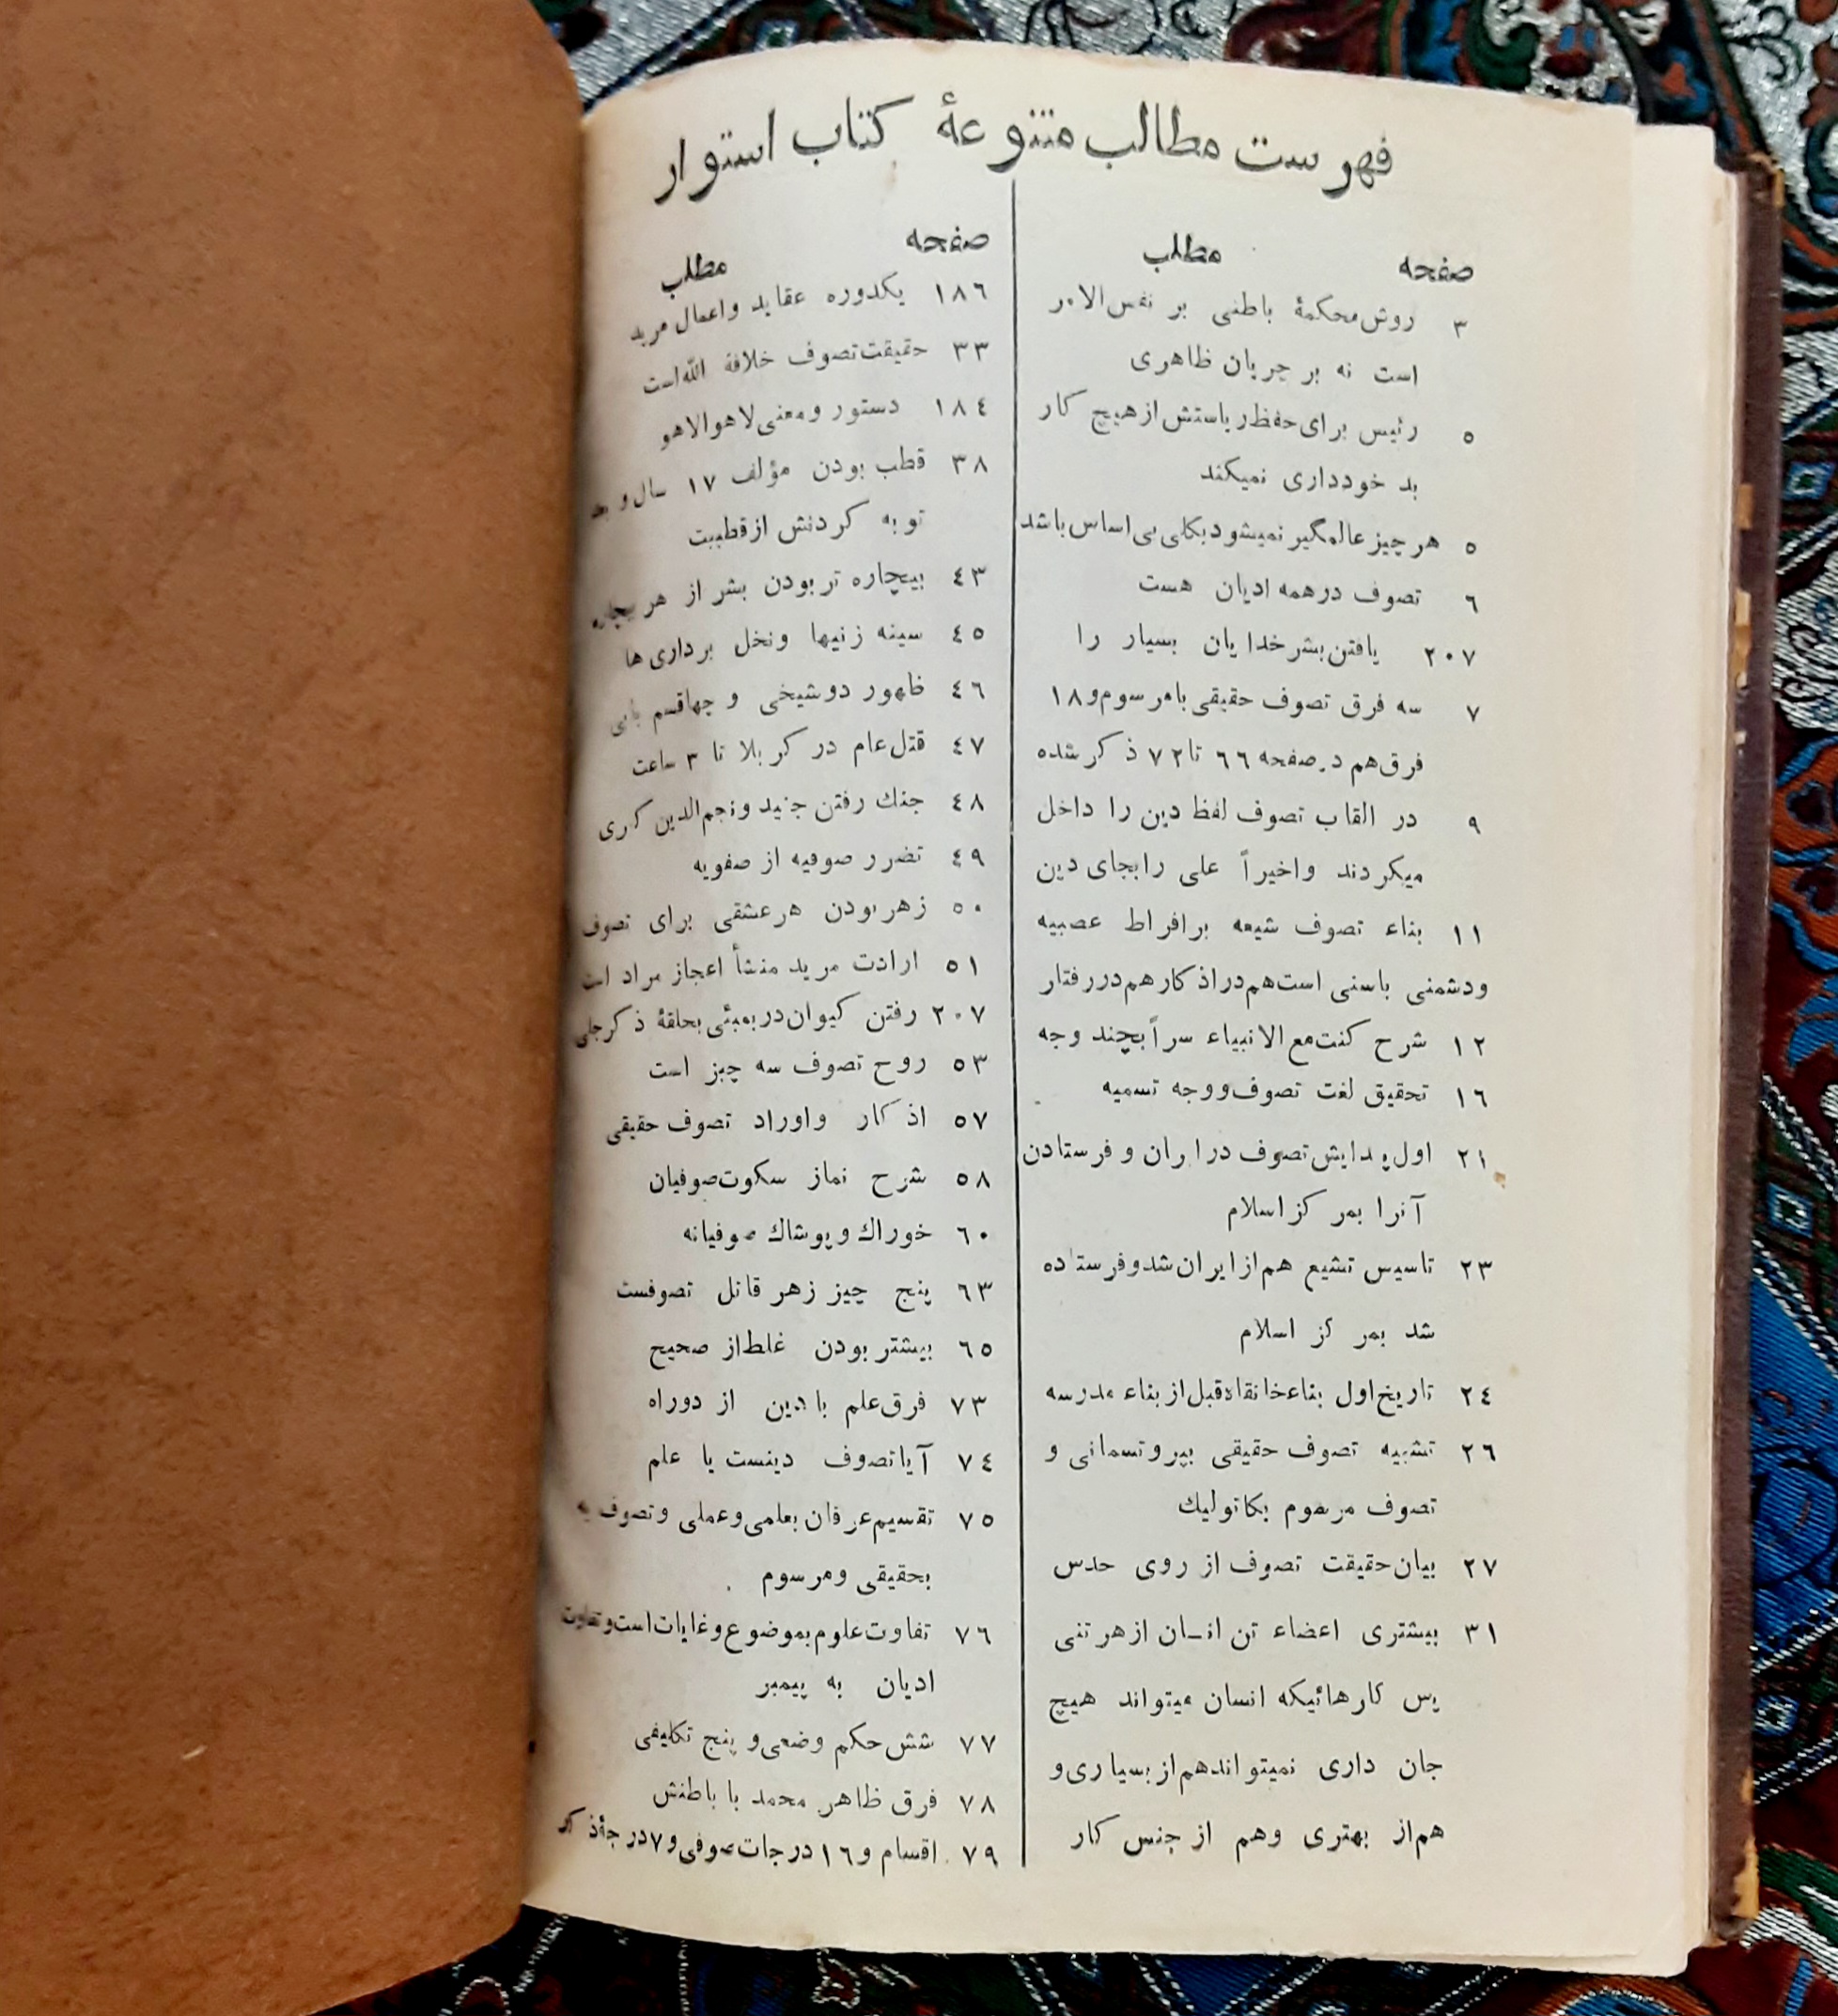 فهرست مطالب متنوعهٔ کتاب استوار
صفحه مطلب
۳ روش محکمهٔ باطنی بر نفس‌الامر
است نه بر جریان ظاهری
۵ رئیس برای حفظ ریاستش از هیچ کار
بد خودداری نمیکند
۵ هر چیز عالمگیر نمیشود بکلی بی‌اساس باشد
٦ تصوف در همه ادیان هست
۲۰۷ یافتن بشر خدایان بسیار را
۷ سه فرق تصوف حقیقی با مرسوم و ۱۸
فرق هم در صفحه ٦٦ تا ۷۲ ذکر شده
۹ در القاب تصوف لفظ دین را داخل
میکردند و اخیراً علی را بجای دین
۱۱ بناء تصوف شیعه بر افراط عصبیه
و دشمنی با سنی است هم در اذکار هم در رفتار
۱۲ شرح کنت مع الانبیاء سراً بچند وجه
۱٦ تحقیق لغت تصوف و وجه تسمیه
۲۱ اول پیدایش تصوف در ایران و فرستادن
آنرا بمرکز اسلام
۲۳ تاسیس تشیع هم از ایران شد و فرستاده
شد بمرکز اسلام
۲٤ تاریخ اول بناء خانقاه قبل از بناء مدرسه
۲٦ تشبیه تصوف حقیقی بپروتستانی و
تصوف مرسوم بکاتولیك
۲۷ بیان حقیقت تصوف از روی حدس
۳۱ بیشتری اعضاء تن انسان از هر تنی
پس کارهائیکه انسان میتواند هیچ
جان داری نمیتواند هم از بسیاری و
هم از بهتری و هم از جنس کار
صفحه مطلب
۱۸٦ یکدوره عقاید و اعمال مرید
۳۳ حقیقت تصوف خلافة الله است
۱۸٤ دستور و معنی لاهو الاهو
۳۸ قطب بودن مؤلف ۱۷ سال و بعد
توبه کردنش از قطبیت
٤۳ بیچاره تر بودن بشر از هر بیچاره
٤۵ سینه زنیها و نخل برداری ها
٤٦ ظهور دو شیخی و چهاقسم بابی
٤۷ قتل عام در کربلا تا ۳ ساعت
٤۸ جنك رفتن جنید و نجم‌الدین کبری
٤۹ تضرر صوفیه از صفویه
۵۰ زهر بودن هر عشقی برای تصوف
۵۱ ارادت مرید منشأ اعجاز مراد است
۲۰۷ رفتن کیوان در بمبئی بحلقهٔ ذکر جلی
۵۳ روح تصوف سه چیز است
۵۷ اذکار و اوراد تصوف حقیقی
۵۸ شرح نماز سکوت صوفیان
٦۰ خوراك و پوشاك صوفیانه
٦۳ پنج چیز زهر قاتل تصوفست
٦۵ بیشتر بودن غلط از صحیح
۷۳ فرق علم با دین از دو راه
۷٤ آیا تصوف دینست یا علم
۷۵ تقسیم عرفان بعلمی و عملی و تصوف به
بحقیقی و مرسوم
۷٦ تفاوت علوم بموضوع و غایات است و تفاوت
ادیان به پیمبر
۷۷ شش حکم وضعی و پنج تکلیفی
۷۸ فرق ظاهر محمد با باطنش
۷۹ اقسام و ۱٦ درجات صوفی و ۷ درجهٔ ذکر